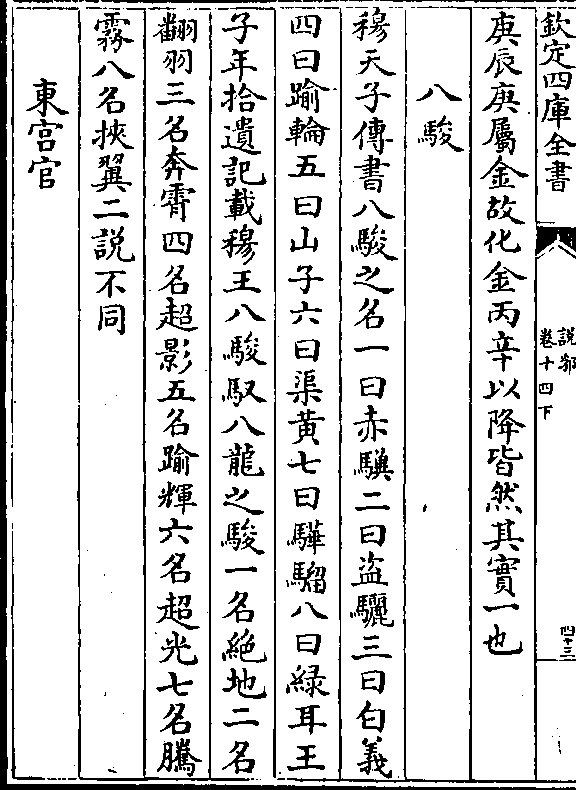 欽定四庫全書
說郛
卷十四下
四十三
庚辰庚屬金故化金丙辛以降皆然其實一也
八駿
穆天子傳書八駿之名一曰赤驥二曰盗驪三曰白義
四曰踰輪五曰山子六曰渠黄七曰驊騮八曰緑耳王
子年拾遺記載穆王八駿馭八龍之駿一名絶地二名
翻羽三名奔霄四名超影五名踰輝六名超光七名騰
霧八名挾翼二説不同
東宫官